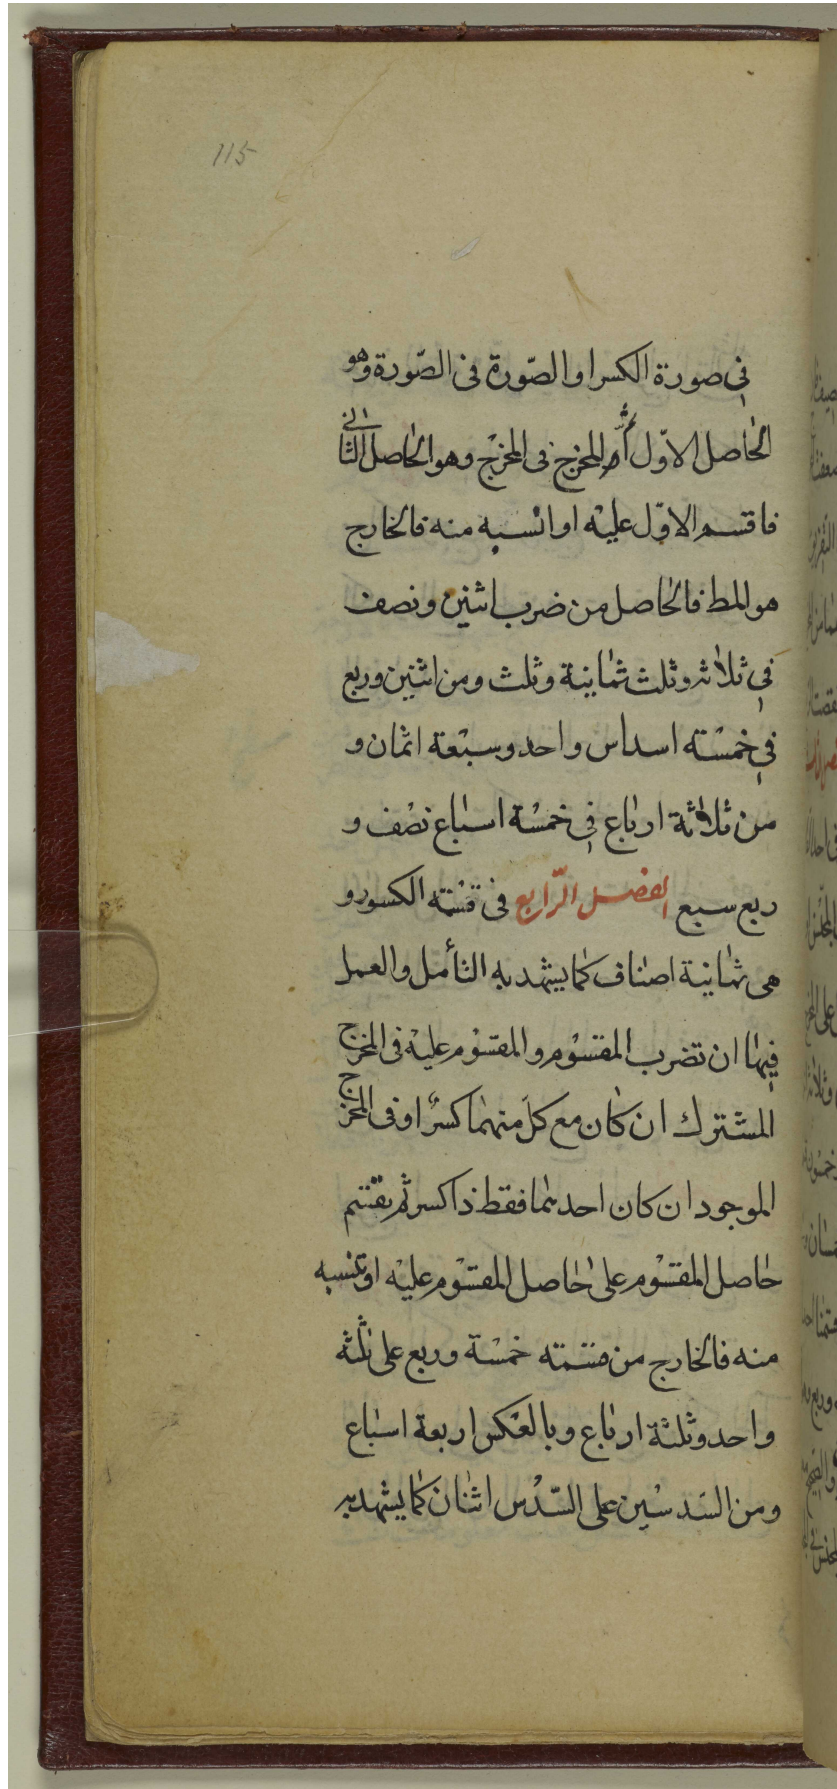 115
في صورة الكسر او الصّورة في الصّورة وهو
الحاصل الاوّل ثم المخرج في المخرج وهو الحاصل الثاني
فاقسم الاوّل عليه او انسبه منه فالخارج
هو المط فالحاصل من ضرب اثنين ونصف
في ثلاثه وثلث ثمانية وثلث ومن اثنين وربع
في خمسته اسداس واحد وسبعة اثمان و
من ثلاثة ارباع في خمسة اسباع نصف و
ربع سبع الفصل الرّابع في قسمته الكسور و
هى ثمانية اصناف كما يشهد به التأمل والعمل
فيها ان تضرب المقسوم والمقسوم عليه في المخرج
المشترك ان كان مع كلّ منهما كسرٌ او في المخرج
الموجود ان كان احدهما فقط ذا كسر ثم يقسم
حاصل المقسوم على حاصل المقسوم عليه او تنسبه
منه فالخارج من قسمته خمسة وربع على ثلثه
واحد وثلثة ارباع وبالعكس اربعة اسباع
ومن السّدسين على السّدس اثنان كما يشهد به